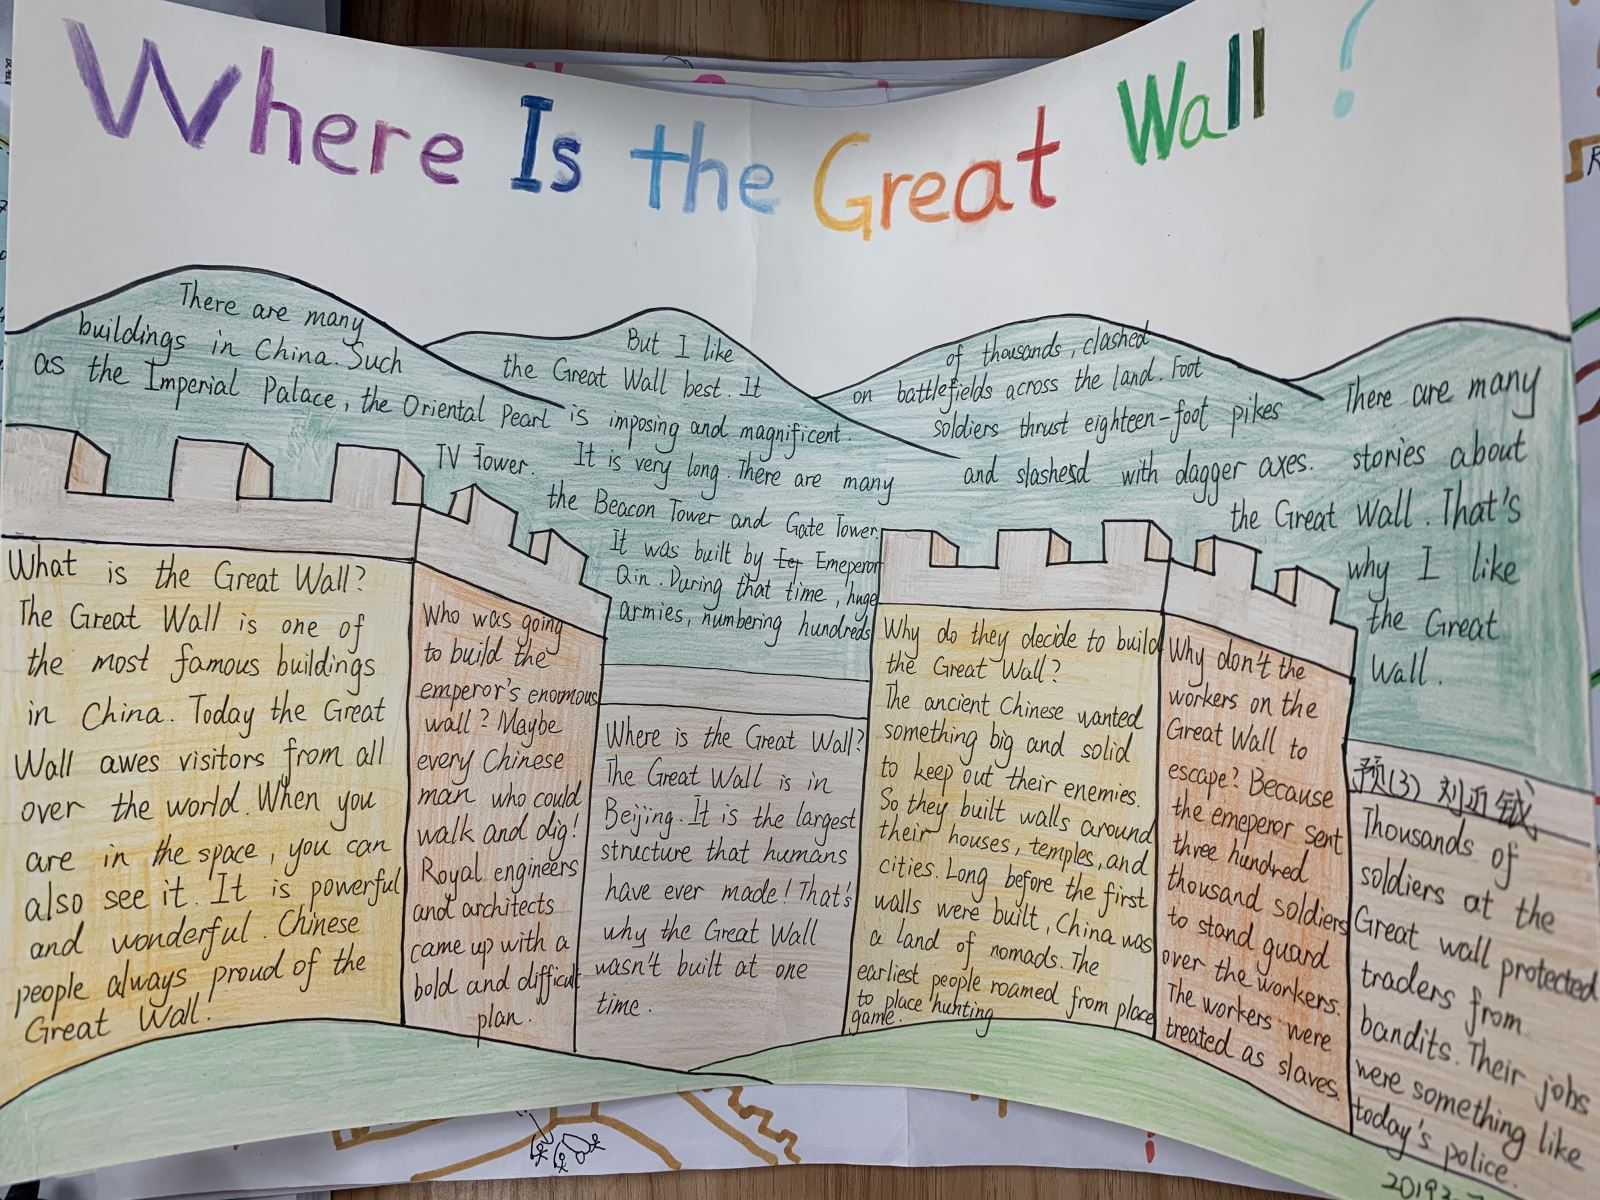 Where Is the Great Wall ?
There are many
buildings in China. Such
as the Imperial Palace, the Oriental Pearl
TV Tower.
But I like
the Great Wall best. It
is imposing and magnificent.
It is very long. There are many
the Beacon Tower and Gate Tower.
It was built by Emeperor
Qin. During that time, huge
armies, numbering hundreds
of thousands, clashed
on battlefields across the land. Foot
soldiers thrust eighteen-foot pikes
and slashesd with dagger axes.
There are many
stories about
the Great Wall. That's
why I like
the Great
Wall.
What is the Great Wall?
The Great Wall is one of
the most famous buildings
in China. Today the Great
Wall awes visitors from all
over the world. When you
are in the space, you can
also see it. It is powerful
and wonderful. Chinese
people always proud of the
Great Wall.
Who was going
to build the
emperor's enormous
wall? Maybe
every Chinese
man who could
walk and dig!
Royal engineers
and architects
came up with a
bold and difficult
plan.
Where is the Great Wall?
The Great Wall is in
Beijing. It is the largest
structure that humans
have ever made! That's
why the Great Wall
wasn't built at one
time.
Why do they decide to build
the Great Wall?
The ancient Chinese wanted
something big and solid
to keep out their enemies.
So they built walls around
their houses, temples, and
cities. Long before the first
walls were built, China was
a land of nomads. The
earliest people roamed from place
to place hunting
game.
Why don't the
workers on the
Great Wall to
escape? Because
the emeperor sent
three hundred
thousand soldiers
to stand guard
over the workers.
The workers were
treated as slaves.
预(3) 刘近钺
Thousands of
soldiers at the
Great wall protected
traders from
bandits. Their jobs
were something like
today's police.